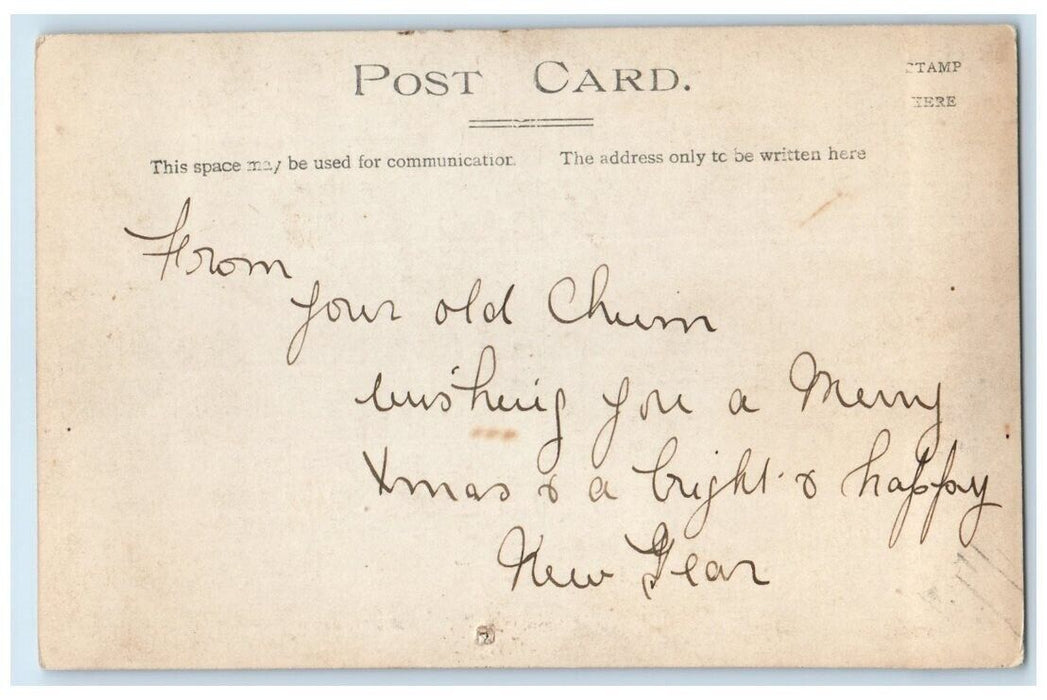 POST CARD.
STAMP
HERE
This space may be used for communication.
The address only to be written here
From
your old Chum
wishing you a Merry
Xmas & a bright & happy
New Year